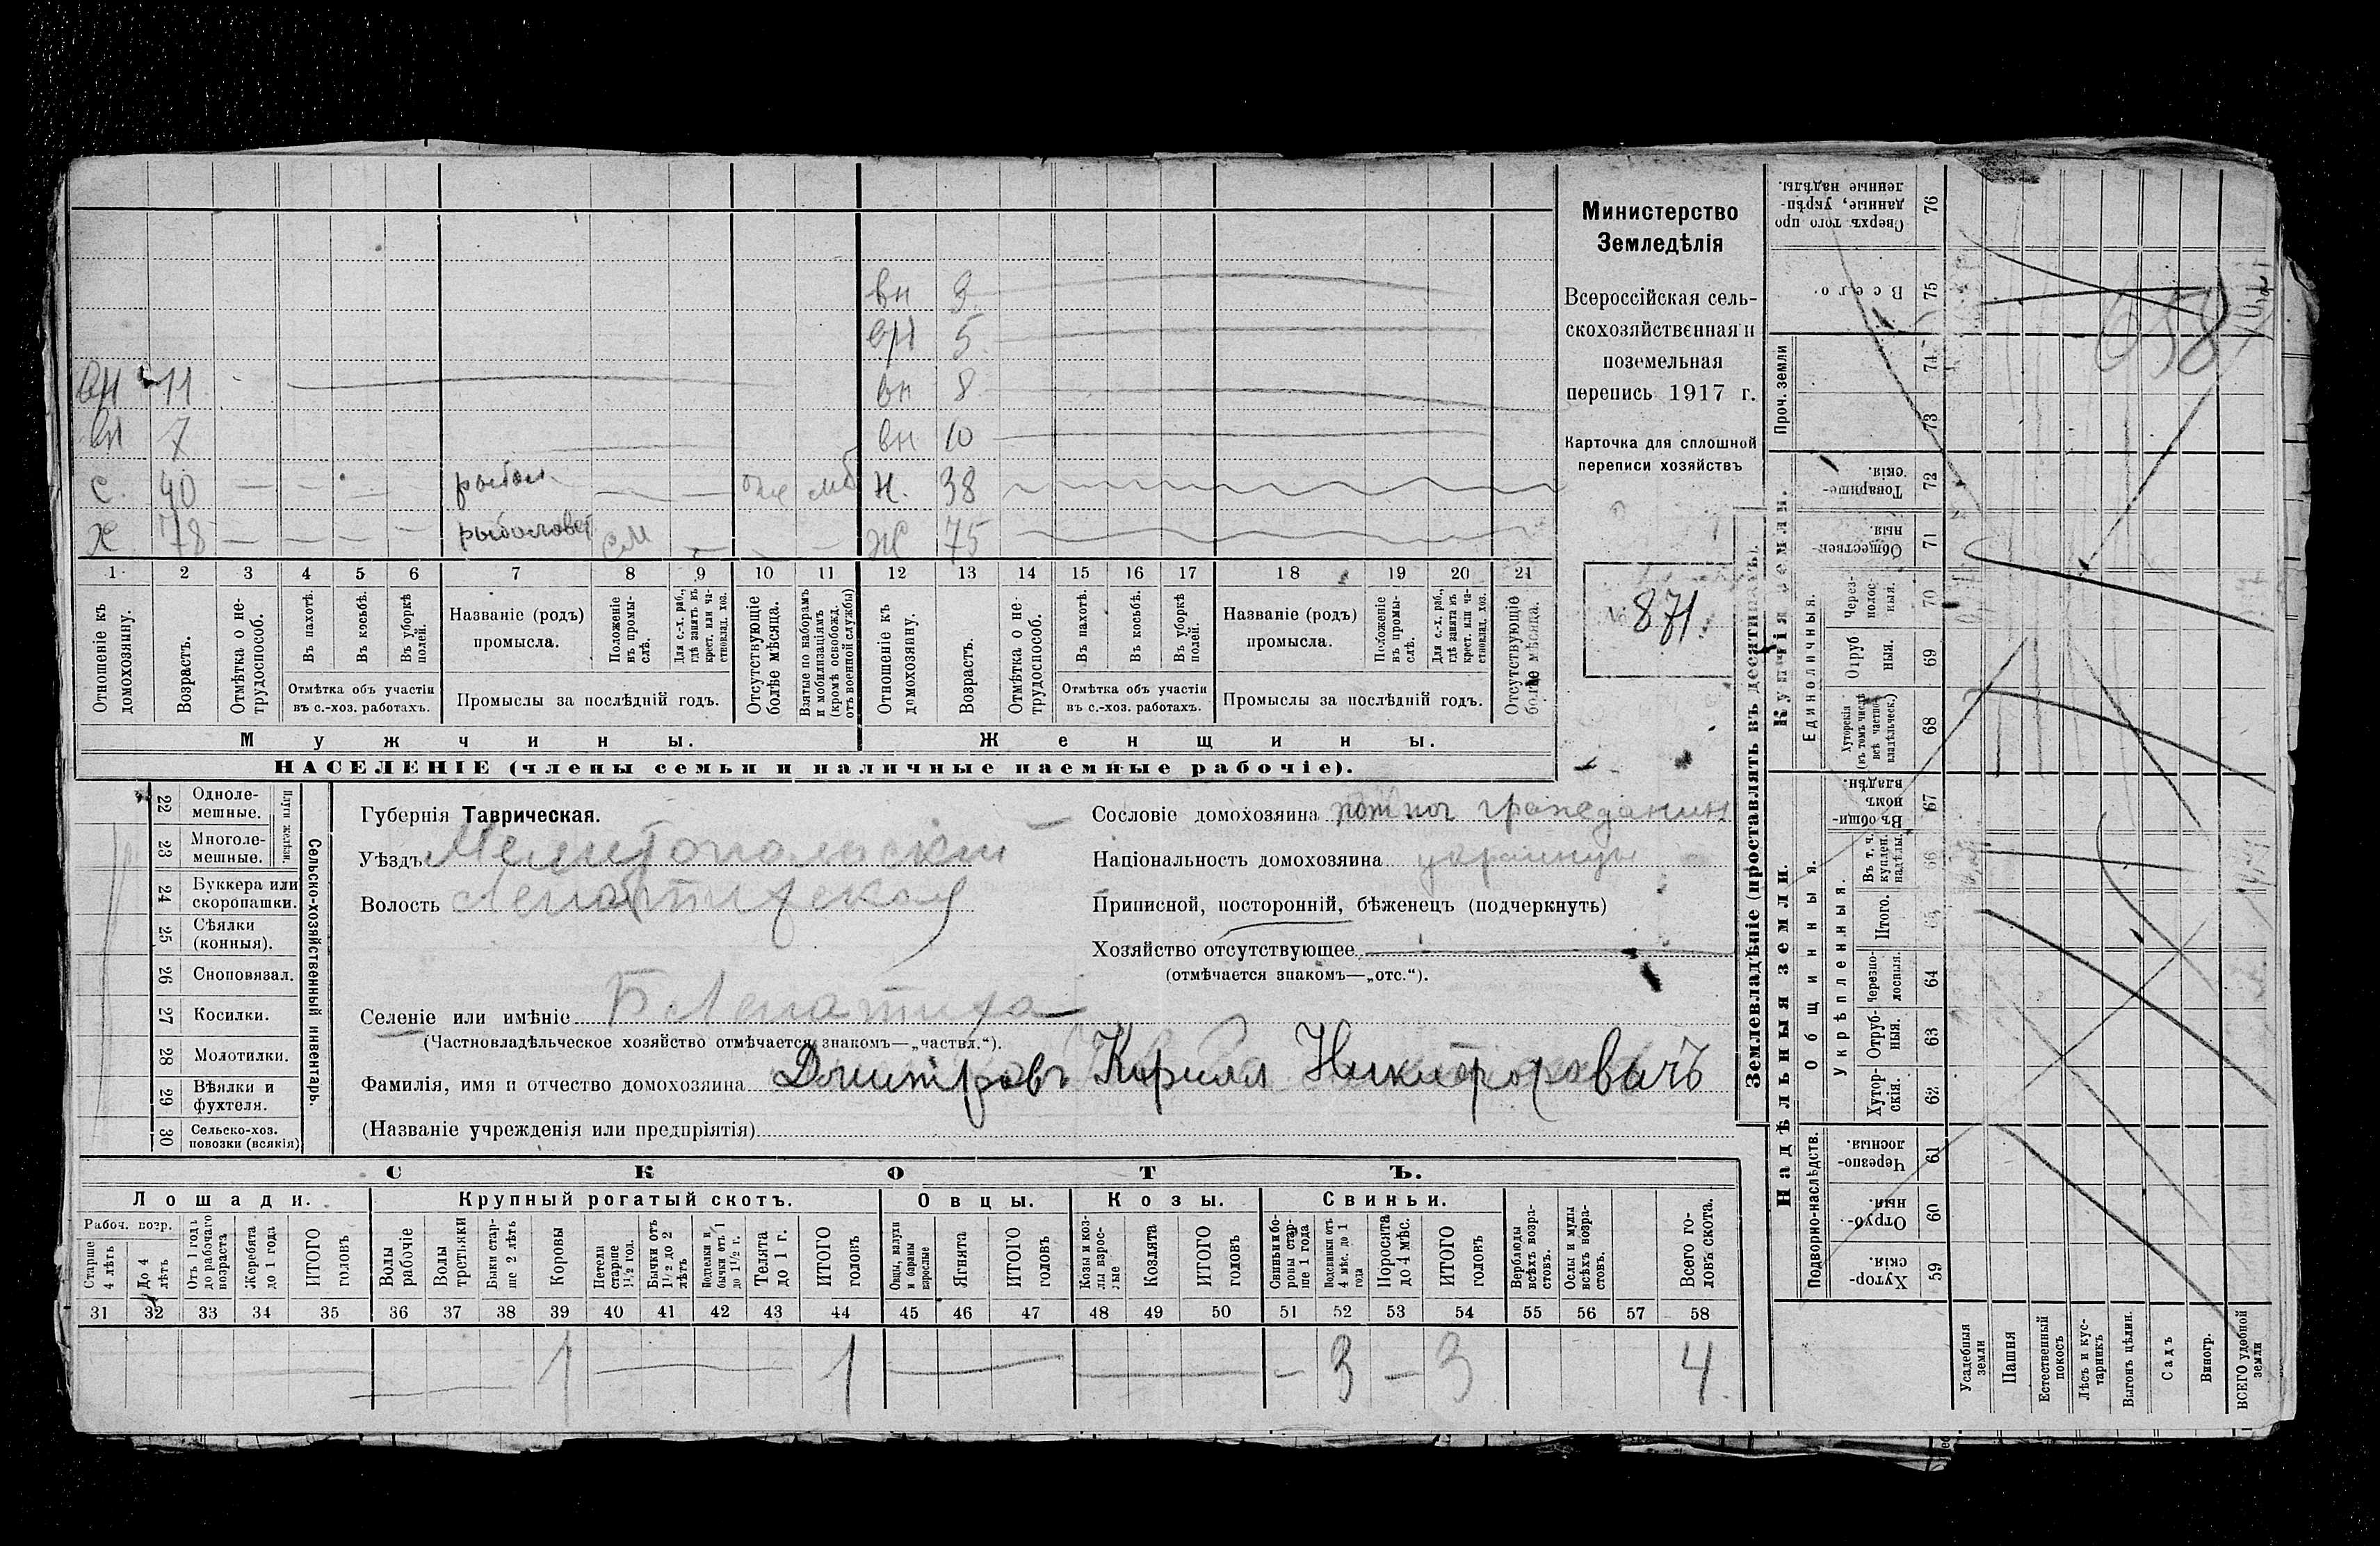 Министерство
Земледѣлія
Всероссійская сель-
скохозяйственная и
поземельная
перепись 1917 г.
Карточка для сплошной
переписи хозяйствъ
№ 871
вн 3
вн 5
вн 11 вн 8
вн 7 вн 10
с. 40 — — — — рыбол. — — мб н. 38
х 78 — — — — рыболовст см — — — ж 75
1 2 3 4 5 6 7 8 9 10 11 12 13 14 15 16 17 18 19 20 21
Отношеніе къ домохозяину.
Возрастъ.
Отмѣтка о не-трудоспособ.
Въ пахотѣ.
Въ косьбѣ.
Въ уборкѣ полей.
Отмѣтка объ участіи
въ с.-хоз. работахъ.
Названіе (родъ)
промысла.
Положеніе въ промы-слѣ.
Для с.-х. раб., гдѣ занятъ въ крест. или ча-стновлад. хоз.
Промыслы за послѣдній годъ.
Отсутствующіе болѣе мѣсяца.
Взятые по наборамъ и мобилизаціямъ (кромѣ освобожд. отъ военной службы)
Отношеніе къ домохозяину.
Возрастъ.
Отмѣтка о не-трудоспособ.
Въ пахотѣ.
Въ косьбѣ.
Въ уборкѣ полей.
Отмѣтка объ участіи
въ с.-хоз. работахъ.
Названіе (родъ)
промысла.
Положеніе въ промы-слѣ.
Для с.-х. раб., гдѣ занята въ крест. или ча-стновлад. хоз.
Промыслы за послѣдній годъ.
Отсутствующіе болѣе мѣсяца.
Мужчины. Женщины.
НАСЕЛЕНІЕ (члены семьи и наличные наемные рабочіе).
Сельско-хозяйственный инвентарь.
Плуги желѣзн.
22 Одноле-мешные.
23 Многоле-мешные.
24 Буккера или скоропашки.
25 Сѣялки (конныя).
26 Сноповязал.
27 Косилки.
28 Молотилки.
29 Вѣялки и фухтеля.
30 Сельско-хоз. повозки (всякія)
Губернія Таврическая.
Уѣздъ Мелитопольскій
Волость Лепатихская
Селеніе или имѣніе Б Лепатиха
(Частновладѣльческое хозяйство отмѣчается знакомъ—„частвл.“).
Фамилія, имя и отчество домохозяина Дмитровъ Кирилл Никифоровичъ
(Названіе учрежденія или предпріятія)
Сословіе домохозяина пот поч гражданин
Національность домохозяина украинцы
Приписной, посторонній, бѣженецъ (подчеркнуть)
Хозяйство отсутствующее
(отмѣчается знакомъ—„отс.“).
СКОТЪ.
Лошади. Крупный рогатый скотъ. Овцы. Козы. Свиньи.
Рабоч. возр.
Старше 4 лѣтъ
До 4 лѣтъ
Отъ 1 года до рабочаго возраста
Жеребята до 1 года
ИТОГО головъ
Волы рабочіе
Волы третьяки
Быки стар-ше 2 лѣтъ
Коровы
Нетели старше 1½ год.
Бычки отъ 1½ до 2 лѣтъ
Подтелки и бычки отъ 1 до 1½ г.
Телята до 1 г.
ИТОГО головъ
Овцы, валухи и бараны взрослые
Ягнята
ИТОГО головъ
Козы и коз-лы взрос-лые
Козлята
ИТОГО головъ
Свиньи и бо-ровы стар-ше 1 года
Подсвинки отъ 4 мѣс. до 1 года
Поросята до 4 мѣс.
ИТОГО головъ
Верблюды всѣхъ возра-стовъ.
Ослы и мулы всѣхъ возра-стовъ.
Всего го-ловъ скота.
31 32 33 34 35 36 37 38 39 40 41 42 43 44 45 46 47 48 49 50 51 52 53 54 55 56 57 58
1 1 3 3 4
Землевладѣніе (проставлять въ десятинахъ).
Купчія земли. Надѣльныя земли.
Проч. земли
Единоличныя.
Общинныя.
Укрѣпленныя.
Подворно-наслѣдств.
Сверхъ того про-данные, укрѣп-ленные надѣлы. 76
Всего. 75
74
73
Товарище-скія. 72
Обществен-ныя 71
Через-полос-ныя. 70
Отруб-ныя. 69
Хуторскія (въ томъ числѣ всѣ частно-владѣльческ.) 68
Въ общин-номъ владѣн. 67
Въ т. ч. куплен. надѣлы. 66
Итого. 65
Черезпо-лосныя. 64
Отруб-ныя. 63
Хутор-скія. 62
Черезпо-лосныя. 61
Отруб-ныя. 60
Хутор-скія. 59
Усадебныя земли
Пашня
Естественный покосъ
Лѣсъ и кус-тарникъ
Выгонъ цѣлин.
Садъ
Виногр.
ВСЕГО удобной земли
658